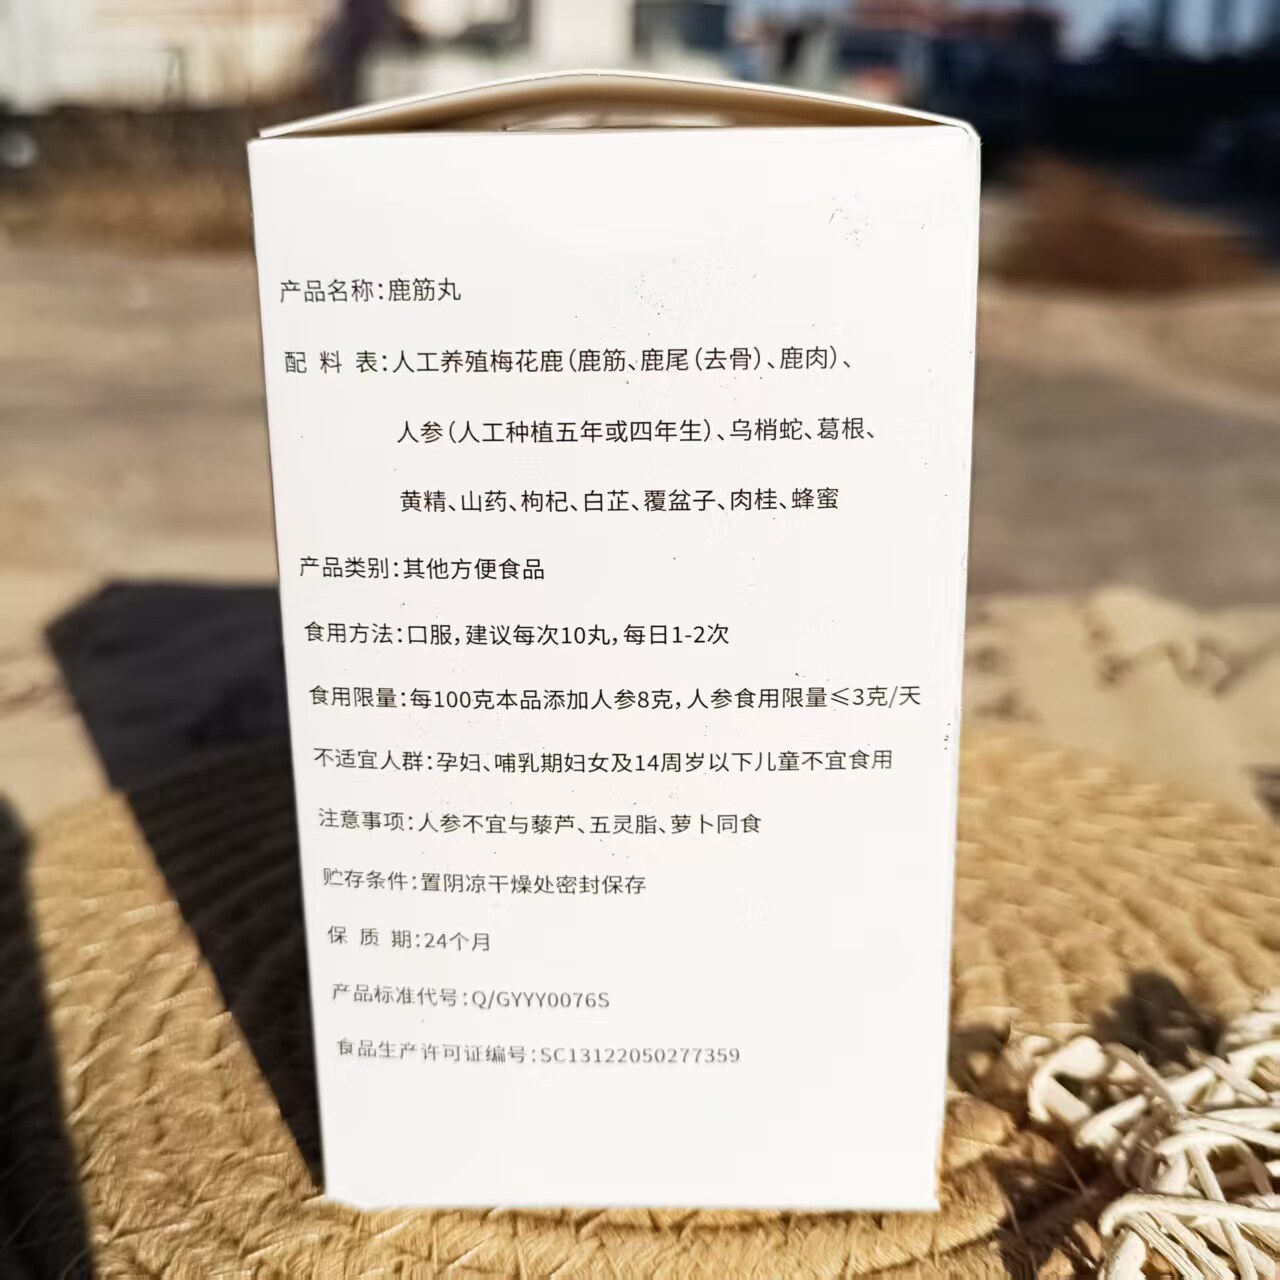 产品名称：鹿筋丸
配 料 表：人工养殖梅花鹿（鹿筋、鹿尾（去骨）、鹿肉）、
人参（人工种植五年或四年生）、乌梢蛇、葛根、
黄精、山药、枸杞、白芷、覆盆子、肉桂、蜂蜜
产品类别：其他方便食品
食用方法：口服，建议每次10丸，每日1-2次
食用限量：每100克本品添加人参8克，人参食用限量≤3克/天
不适宜人群：孕妇、哺乳期妇女及14周岁以下儿童不宜食用
注意事项：人参不宜与藜芦、五灵脂、萝卜同食
贮存条件：置阴凉干燥处密封保存
保 质 期：24个月
产品标准代号：Q/GYYY0076S
食品生产许可证编号：SC13122050277359